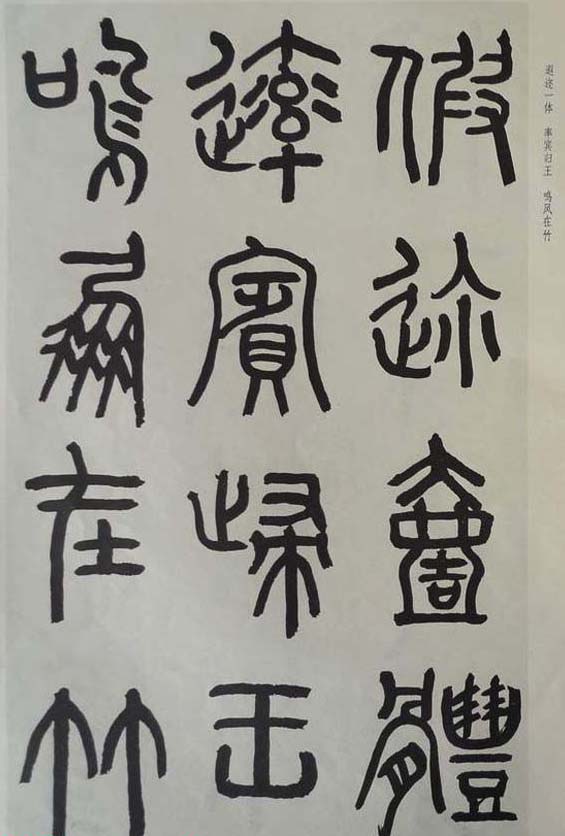 遐迩一体 率宾归王 鸣凤在竹
假迩壹體
䢦賓歸王
鳴鳳在竹